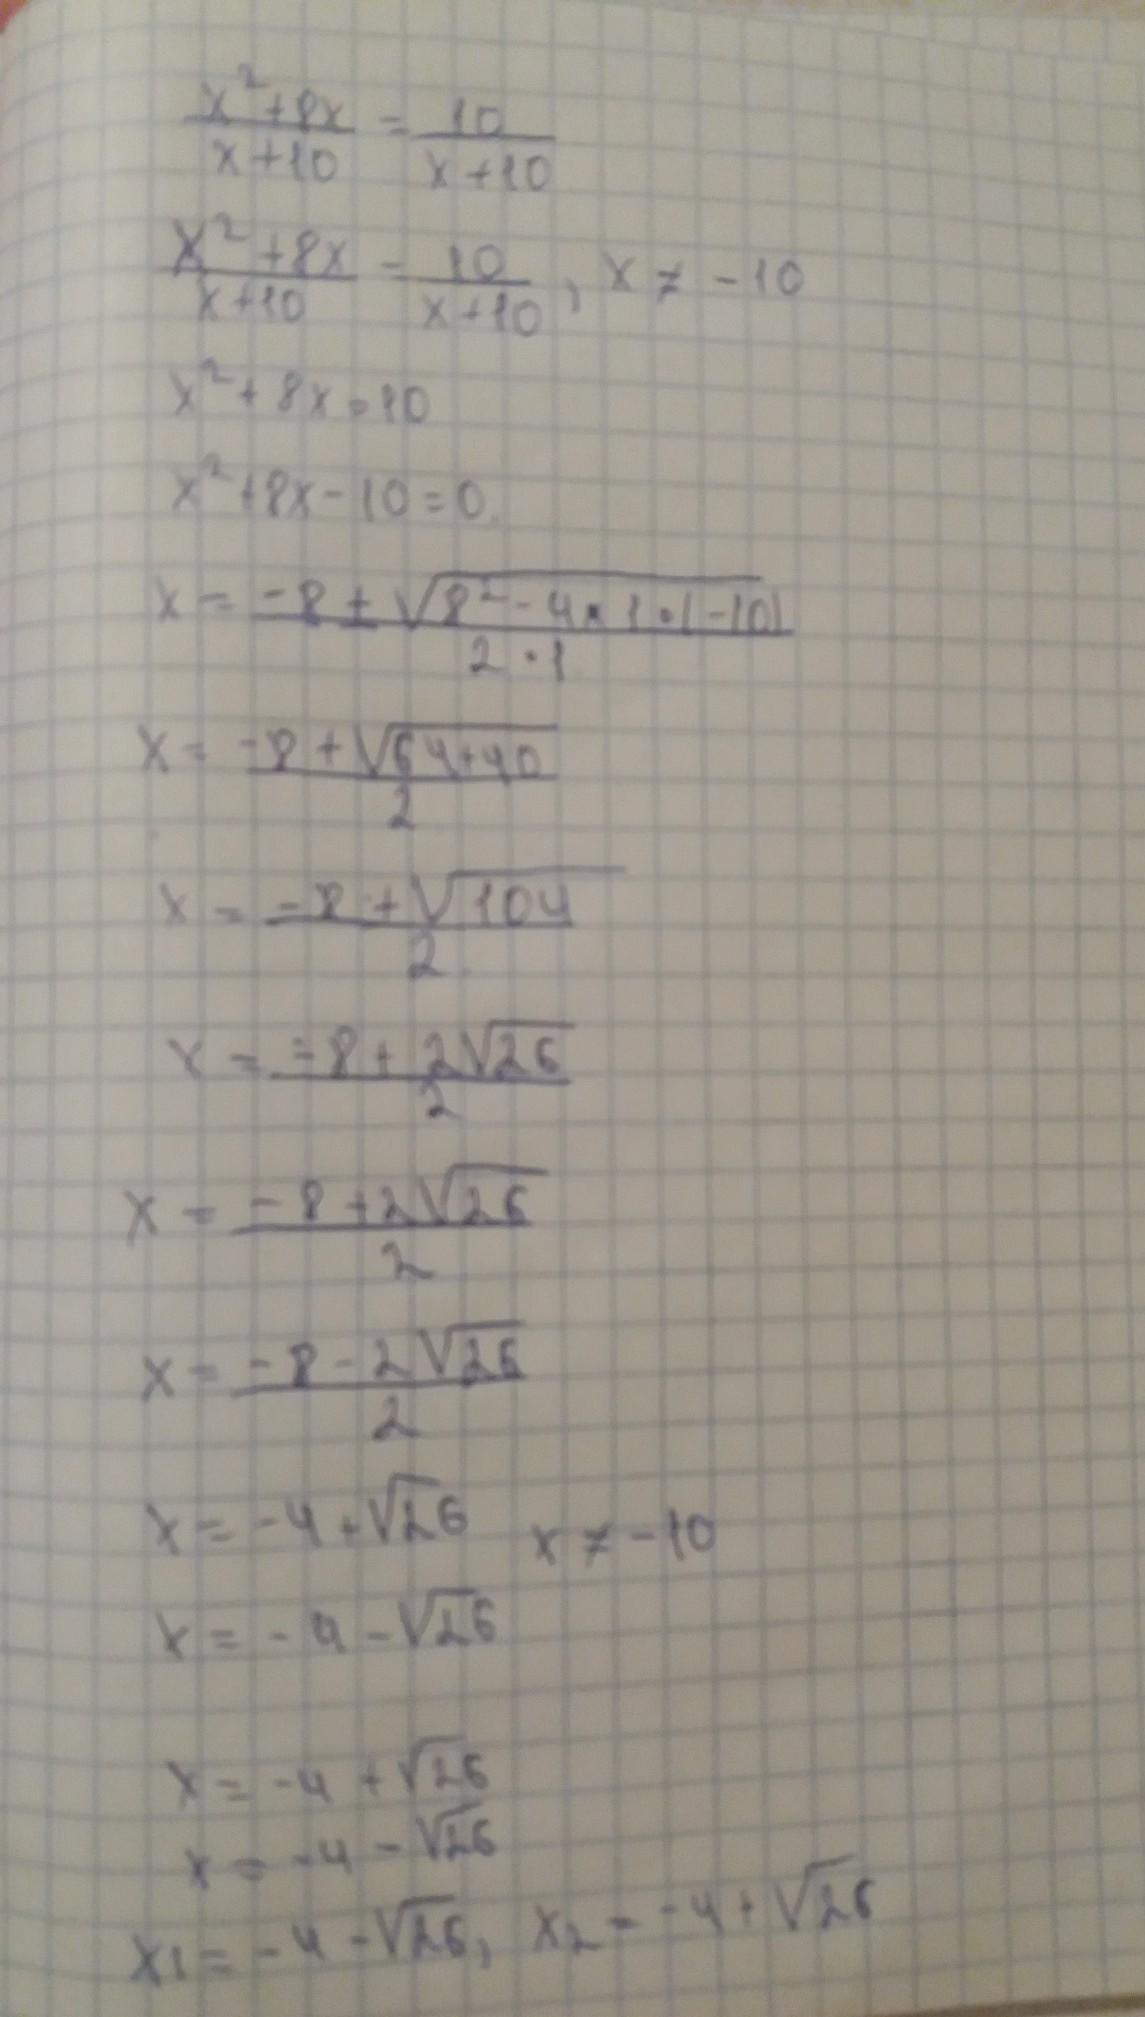 x²+8x/x+10 = 10/x+10
x²+8x/x+10 = 10/x+10, x ≠ -10
x²+8x=10
x²+8x-10=0
x = -8 ± √8²-4·1·(-10)/2·1
x = -8+√64+40/2
x = -8+√104/2
x = -8+2√26/2
x = -8+2√26/2
x = -8-2√26/2
x = -4+√26 x ≠ -10
x = -4-√26
x = -4+√26
x = -4-√26
x1 = -4-√26, x2 = -4+√26